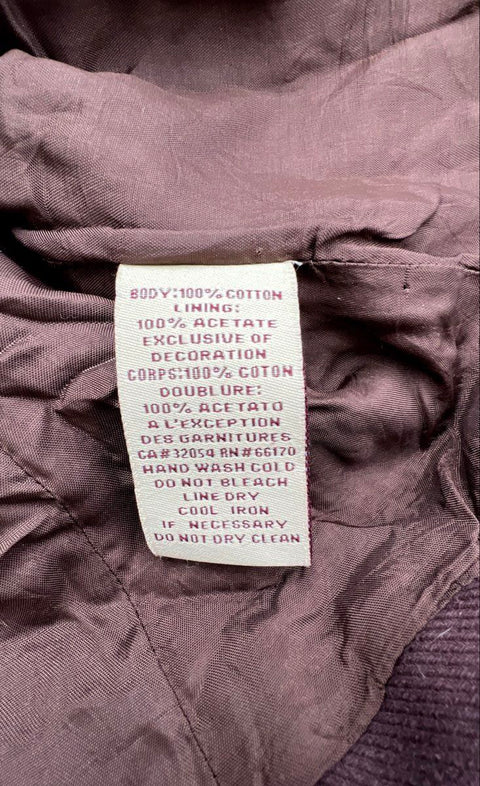 BODY:100% COTTON
LINING:
100% ACETATE
EXCLUSIVE OF
DECORATION
CORPS:100% COTON
DOUBLURE:
100% ACETATO
A L'EXCEPTION
DES GARNITURES
CA#32054 RN#66170
HAND WASH COLD
DO NOT BLEACH
LINE DRY
COOL IRON
IF NECESSARY
DO NOT DRY CLEAN